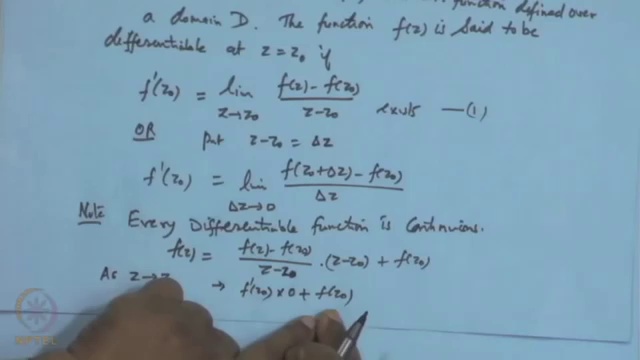 function defined over
a domain D. The function f(z) is said to be
differentiable at z = z₀ if
f'(z₀) = lim z→z₀ (f(z) - f(z₀))/(z - z₀) exists —(1)
OR put z - z₀ = Δz
f'(z₀) = lim Δz→0 (f(z₀+Δz) - f(z₀))/Δz
Note Every Differentiable function is Continuous.
f(z) = (f(z) - f(z₀))/(z - z₀) · (z - z₀) + f(z₀)
As z→z → f'(z₀) × 0 + f(z₀)
NPTEL